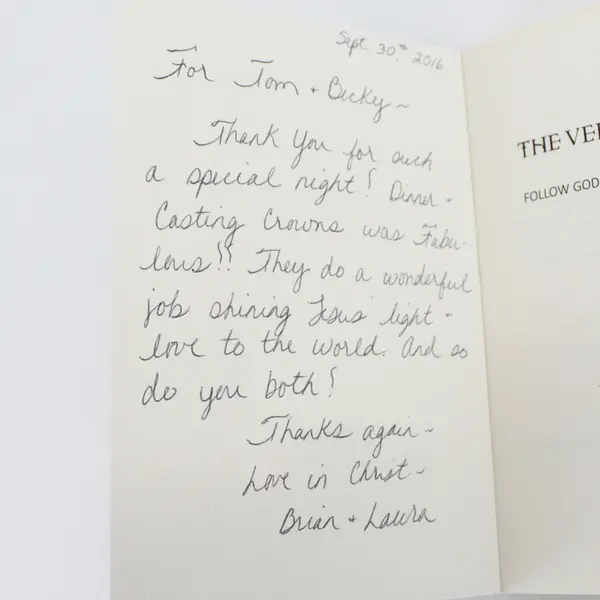 Sept. 30th, 2016
For Tom + Becky ~
Thank You for such
a special night! Dinner +
Casting Crowns was Fabu-
lous!! They do a wonderful
job shining Jesus' light +
love to the world. And so
do you both!
Thanks again ~
Love in Christ ~
Brian + Laura
THE VE
FOLLOW GOD